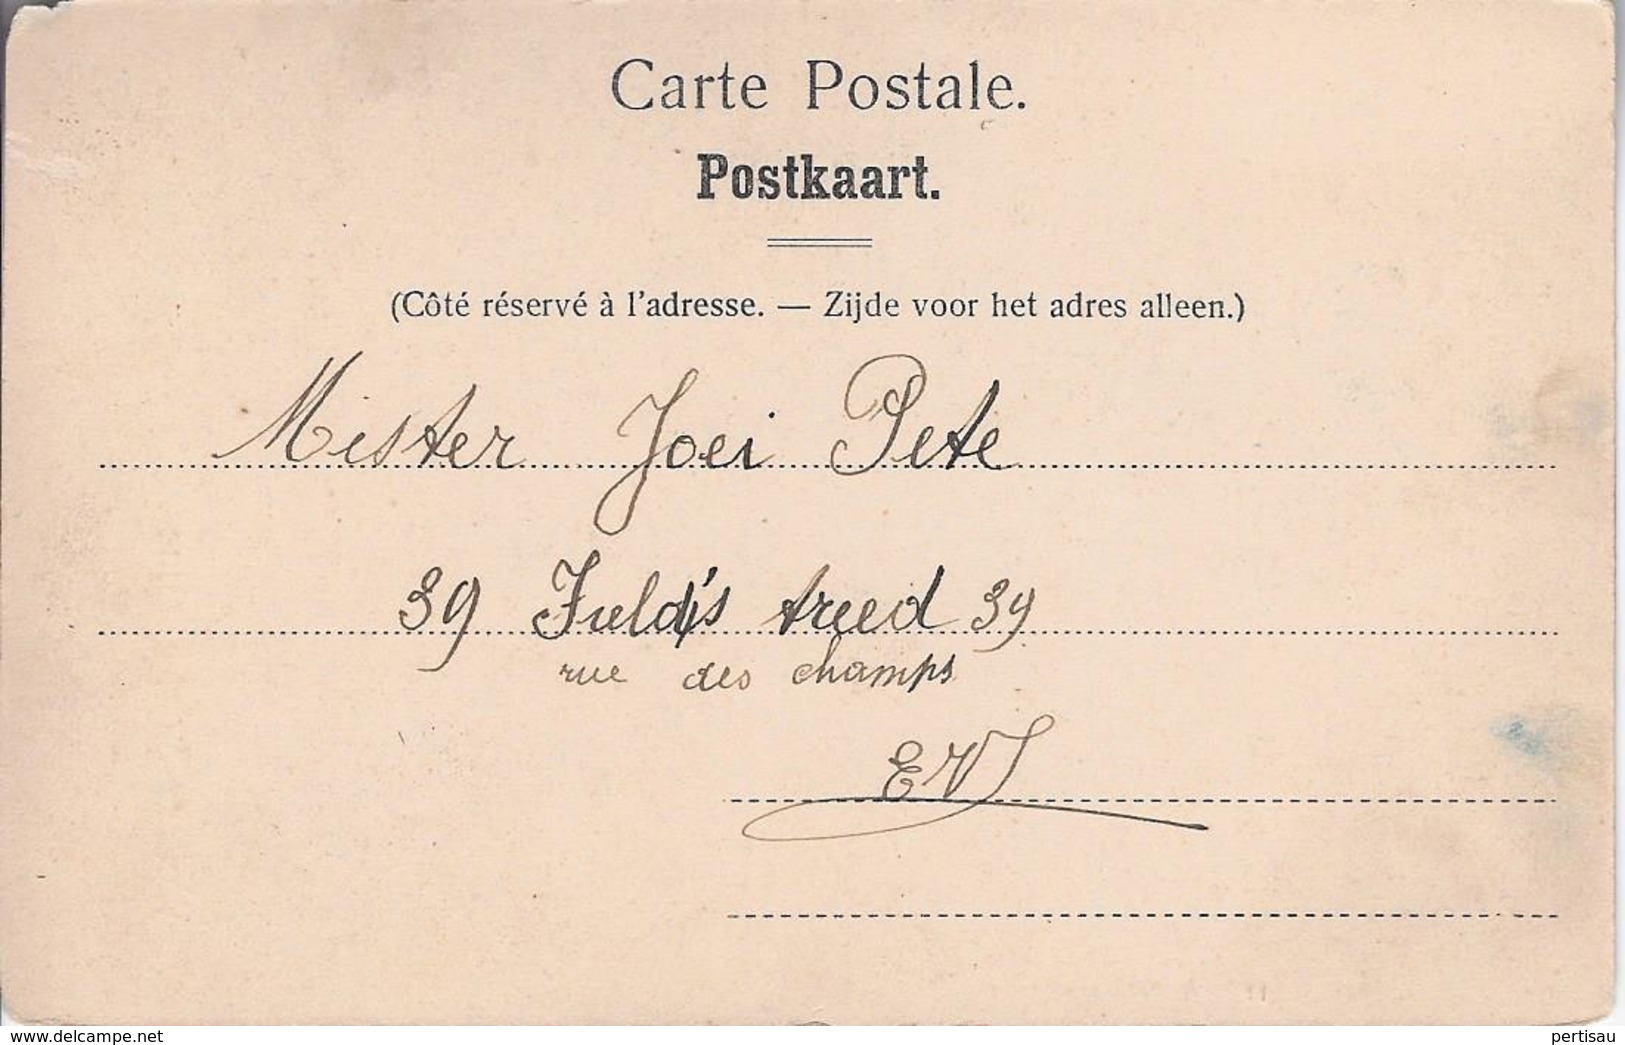 Carte Postale.
Postkaart.
(Côté réservé à l'adresse. — Zijde voor het adres alleen.)
Mister Joei Pete
39 Fuld's treed 39
rue des champs
EV
www.delcampe.net
pertisau